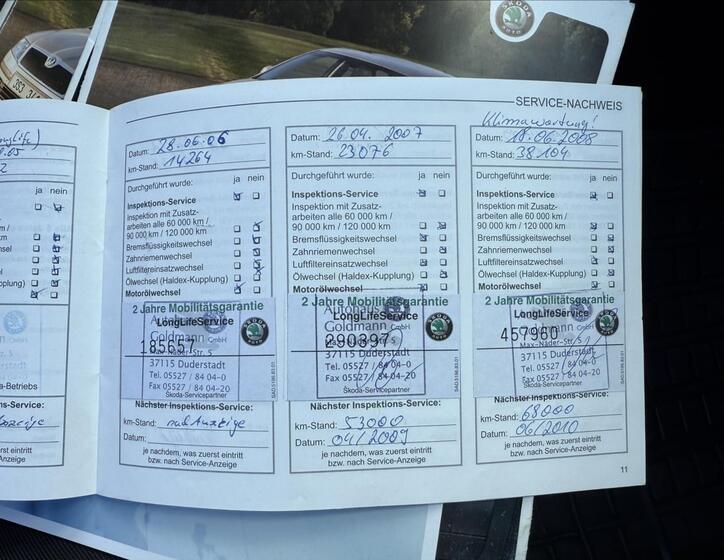 SKODA
AUTO
SERVICE-NACHWEIS
ja nein
a-Betriebs
n-Service:
rst eintritt
zeige
Datum: 28.06.06
km-Stand: 14264
Durchgeführt wurde: ja nein
Inspektions-Service
Inspektion mit Zusatz-
arbeiten alle 60 000 km /
90 000 km / 120 000 km
Bremsflüssigkeitswechsel
Zahnriemenwechsel
Luftfiltereinsatzwechsel
Ölwechsel (Haldex-Kupplung)
Motorölwechsel
2 Jahre Mobilitätsgarantie
LongLifeService
Goldmann GmbH
185657
Max-Näder-Str. 5
37115 Duderstadt
Tel. 05527 / 84 04-0
Fax 05527 / 84 04-20
Škoda-Servicepartner
Nächster Inspektions-Service:
km-Stand: nach Anzeige
Datum:
je nachdem, was zuerst eintritt
bzw. nach Service-Anzeige
Datum: 26.04. 2007
km-Stand: 23076
Durchgeführt wurde: ja nein
Inspektions-Service
Inspektion mit Zusatz-
arbeiten alle 60 000 km /
90 000 km / 120 000 km
Bremsflüssigkeitswechsel
Zahnriemenwechsel
Luftfiltereinsatzwechsel
Ölwechsel (Haldex-Kupplung)
Motorölwechsel
2 Jahre Mobilitätsgarantie
Autohaus
LongLifeService
Goldmann GmbH
290397
37115 Duderstadt
Tel. 05527 / 84 04-0
Fax 05527 / 84 04-20
Škoda-Servicepartner
Nächster Inspektions-Service:
km-Stand: 53000
Datum: 04/2009
je nachdem, was zuerst eintritt
bzw. nach Service-Anzeige
Klimawartung!
Datum: 18.06.2008
km-Stand: 38104
Durchgeführt wurde: ja nein
Inspektions-Service
Inspektion mit Zusatz-
arbeiten alle 60 000 km /
90 000 km / 120 000 km
Bremsflüssigkeitswechsel
Zahnriemenwechsel
Luftfiltereinsatzwechsel
Ölwechsel (Haldex-Kupplung)
Motorölwechsel
2 Jahre Mobilitätsgarantie
LongLifeService
Goldmann GmbH
457960
Max-Näder-Str. 5
37115 Duderstadt
Tel. 05527 / 84 04-0
Fax 05527 / 84 04-20
Škoda-Servicepartner
Nächster Inspektions-Service:
km-Stand: 68000
Datum: 06/2010
je nachdem, was zuerst eintritt
bzw. nach Service-Anzeige
11